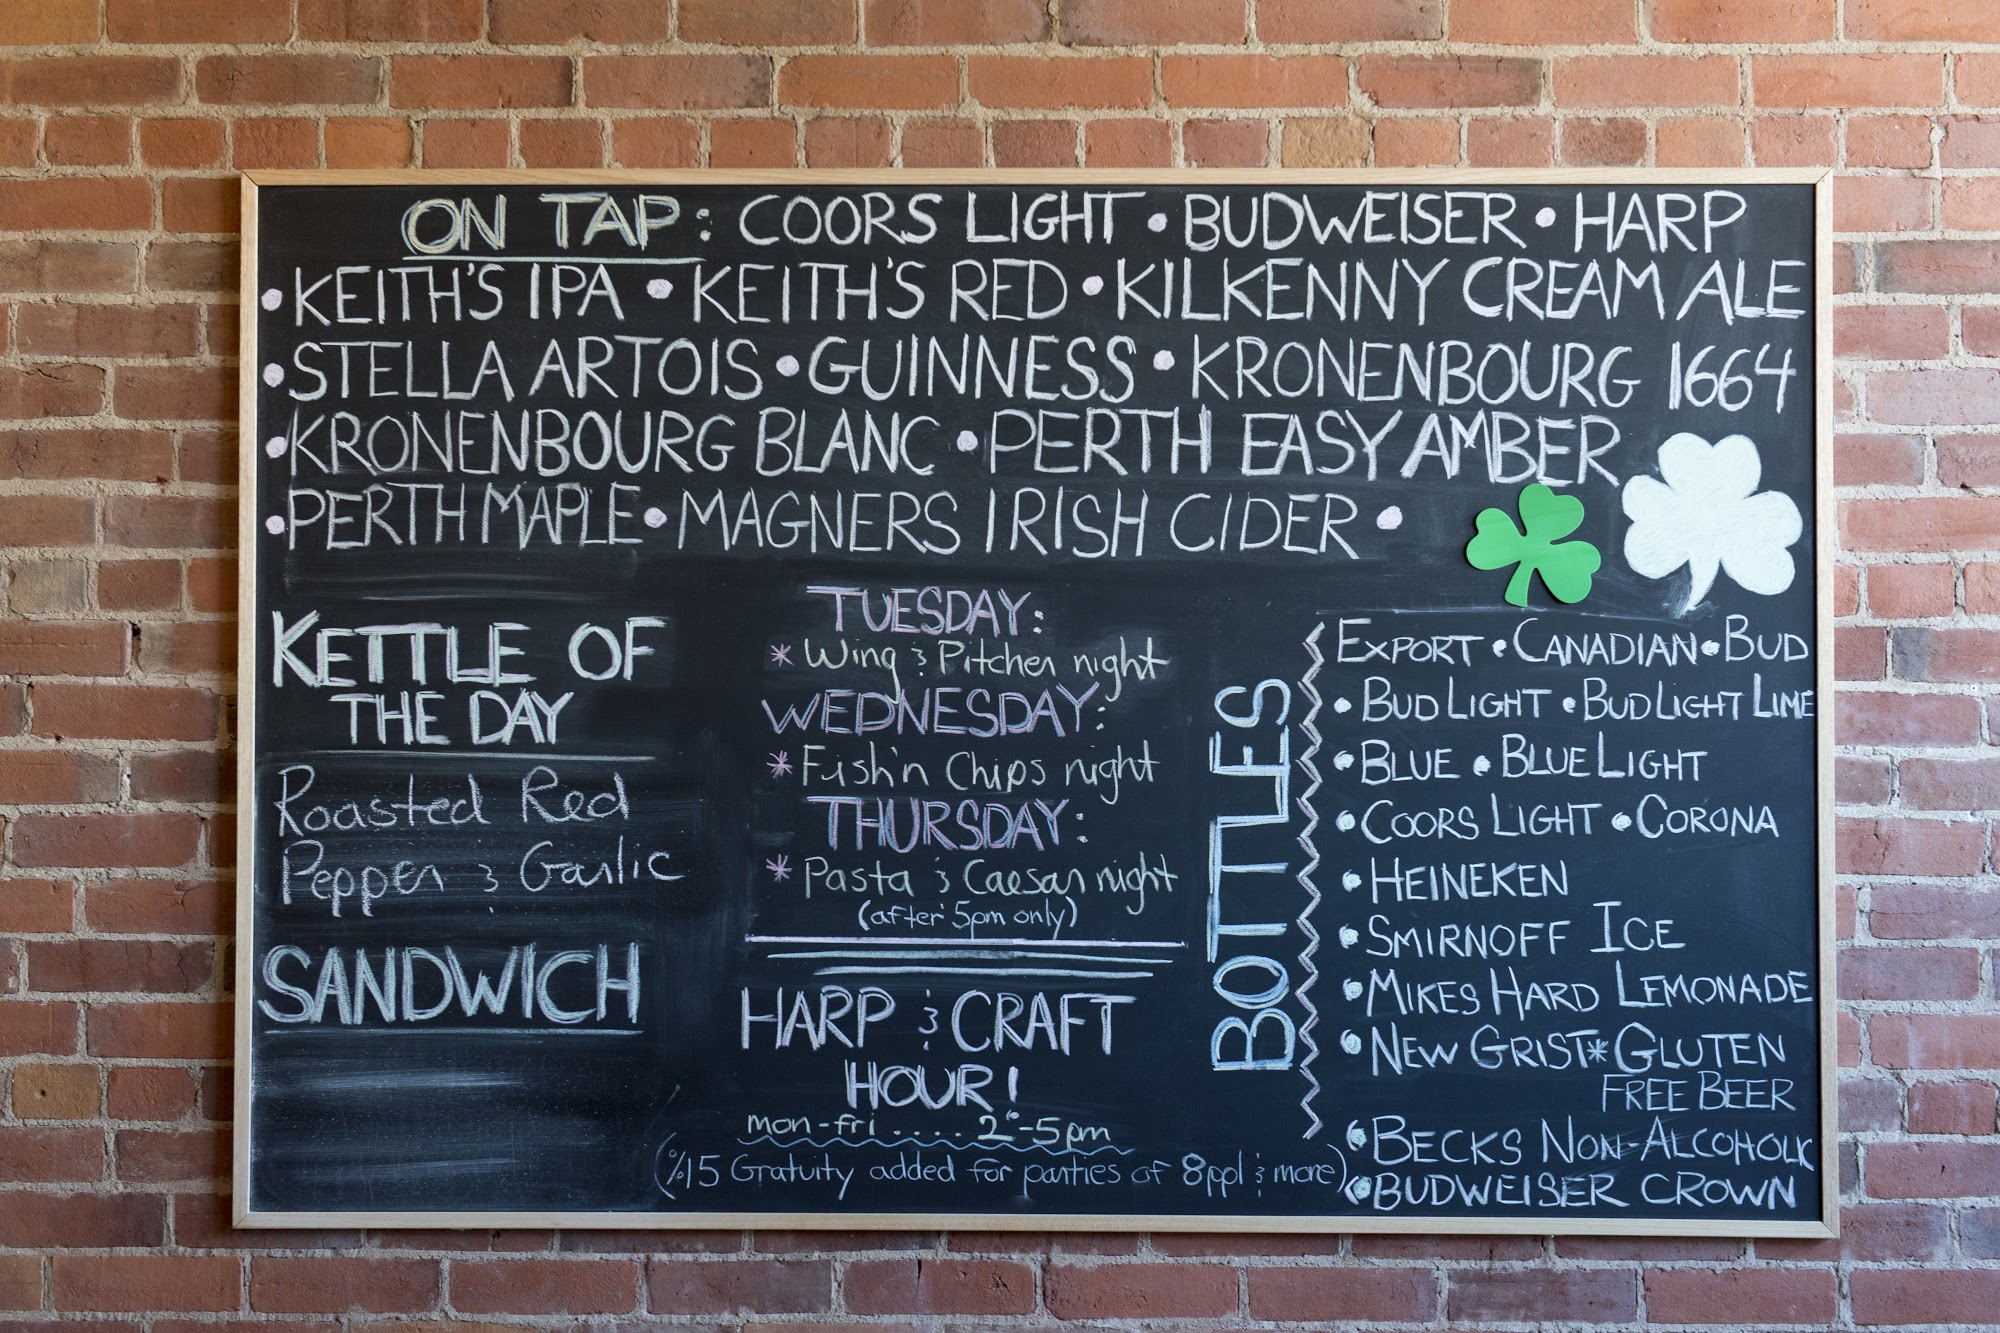 ON TAP: COORS LIGHT • BUDWEISER • HARP
• KEITH'S IPA • KEITH'S RED • KILKENNY CREAM ALE
• STELLA ARTOIS • GUINNESS • KRONENBOURG 1664
• KRONENBOURG BLANC • PERTH EASY AMBER
• PERTH MAPLE • MAGNERS IRISH CIDER •
KETTLE OF
THE DAY
Roasted Red
Pepper & Garlic
SANDWICH
TUESDAY:
* Wing & Pitcher night
WEDNESDAY:
* Fish'n Chips night
THURSDAY:
* Pasta & Caesar night
(after 5pm only)
HARP & CRAFT
HOUR!
mon-fri .... 2-5pm
(%15 Gratuity added for parties of 8ppl & more)
BOTTLES
EXPORT • CANADIAN • BUD
• BUD LIGHT • BUD LIGHT LIME
• BLUE • BLUE LIGHT
• COORS LIGHT • CORONA
• HEINEKEN
• SMIRNOFF ICE
• MIKES HARD LEMONADE
• NEW GRIST * GLUTEN
FREE BEER
• BECKS NON-ALCOHOLIC
• BUDWEISER CROWN